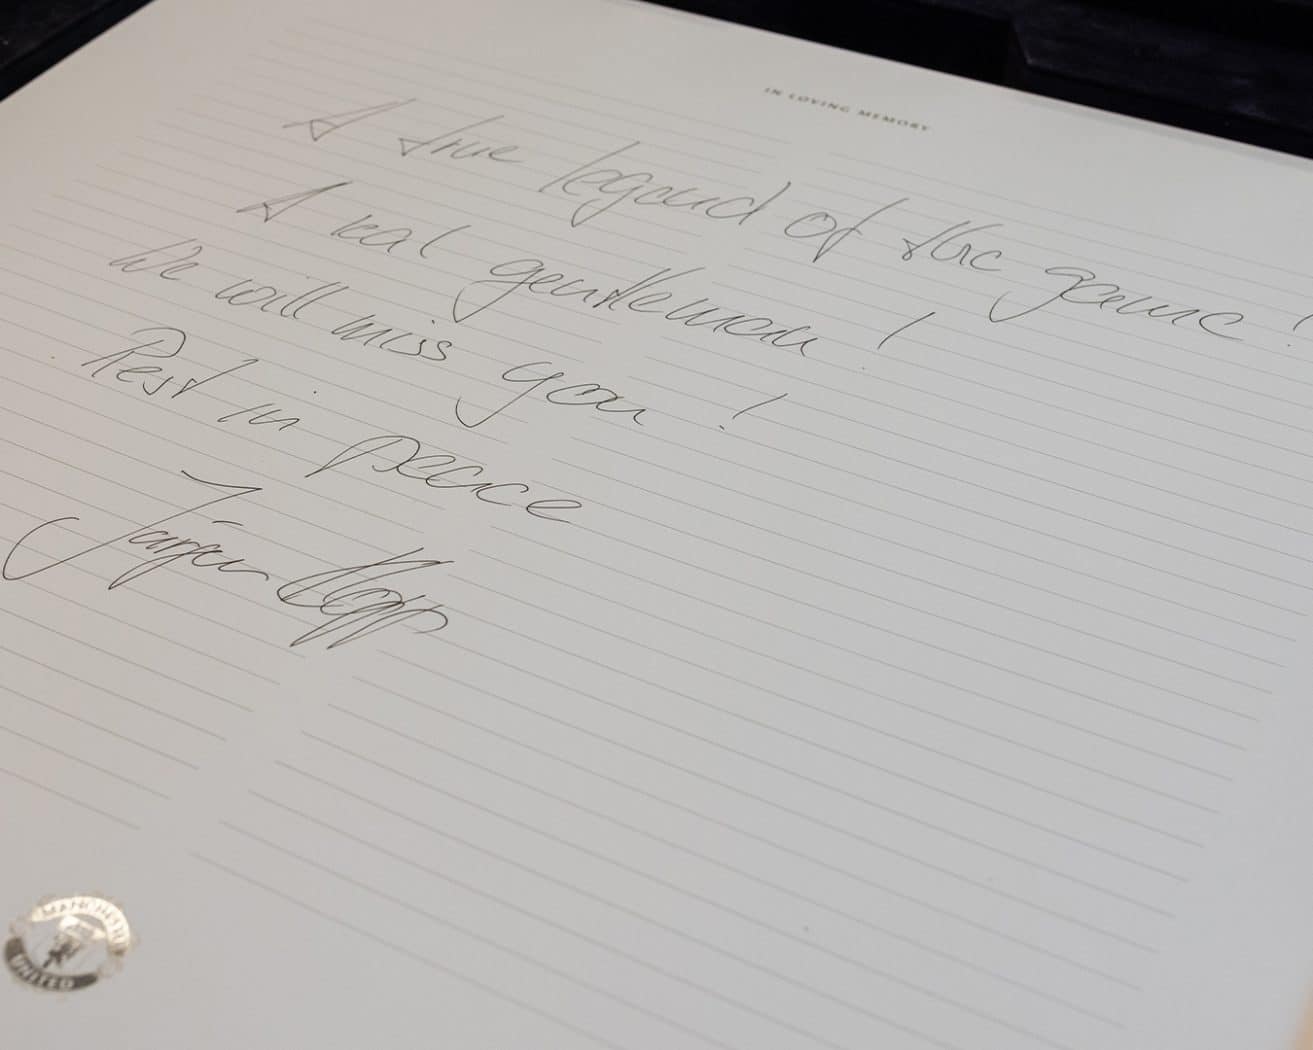 IN LOVING MEMORY
A true legend of the game!
A real gentleman!
We will miss you!
Rest in peace
Jürgen Klopp
MANCHESTER
UNITED